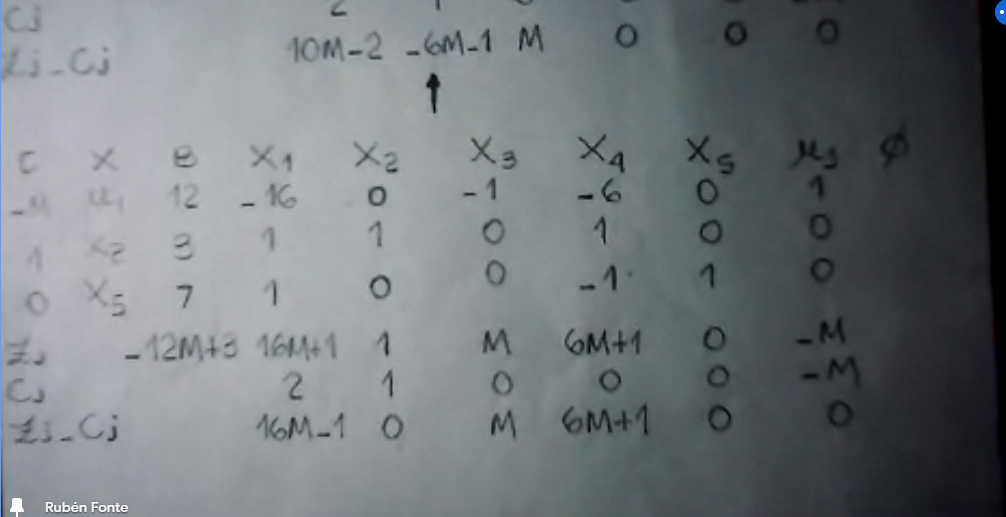 Cj 2
Zj-Cj 10M-2 -6M-1 M 0 0 0
↑
C X B X1 X2 X3 X4 X5 μ1 ϕ
-M μ1 12 -16 0 -1 -6 0 1
1 X2 3 1 1 0 1 0 0
0 X5 7 1 0 0 -1 1 0
Zj -12M+3 16M+1 1 M 6M+1 0 -M
Cj 2 1 0 0 0 -M
Zj-Cj 16M-1 0 M 6M+1 0 0
Rubén Fonte